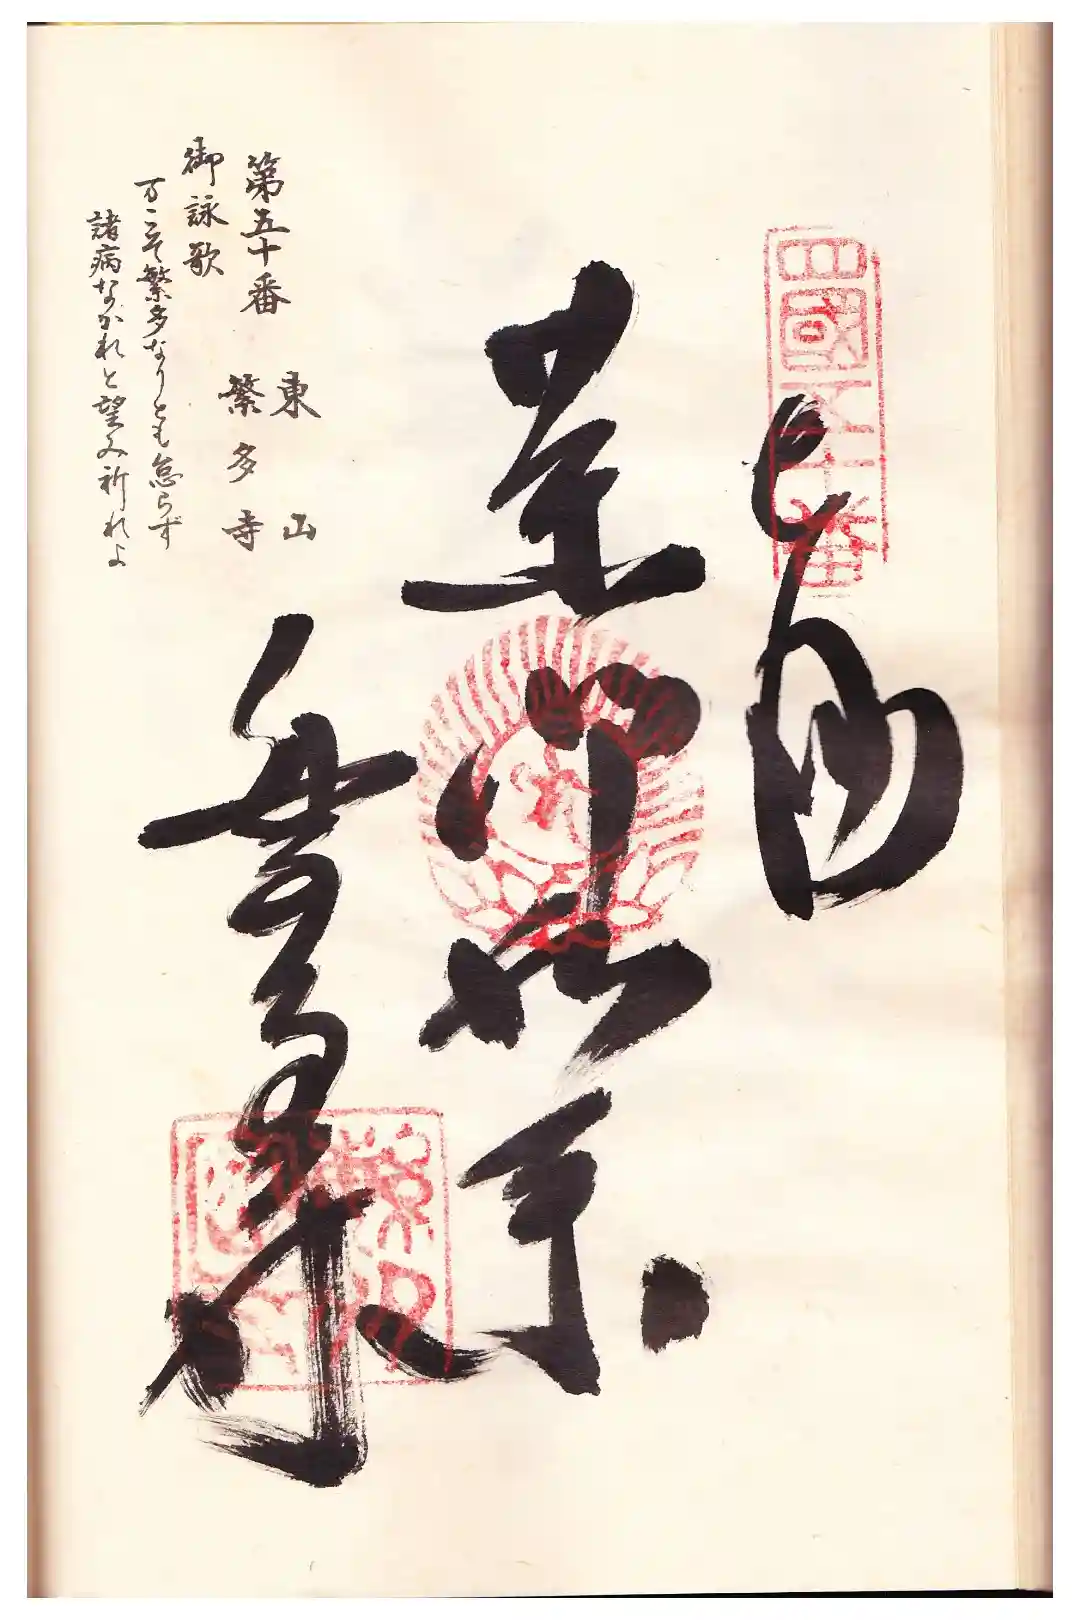 四國五十番
薬師如来
繁多寺
第五十番
東山
繁多寺
御詠歌
万こそ繁多なりとも怠らず
諸病なかれと望み祈れよ